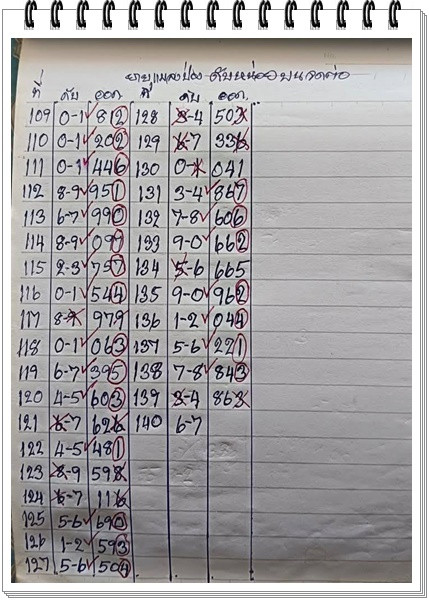 ดับหน่วยบนจดต่อ
ที่ ดับ ออก ที่ ดับ ออก
109 0-1 812 128 3-4 503
110 0-1 202 129 6-7 336
111 0-1 446 130 0-1 041
112 8-9 951 131 3-4 867
113 6-7 990 132 7-8 606
114 8-9 099 133 9-0 662
115 2-3 757 134 5-6 665
116 0-1 544 135 9-0 962
117 979 136 1-2 044
118 0-1 063 137 5-6 221
119 6-7 395 138 7-8 843
120 4-5 603 139 3-4 863
121 6-7 626 140 6-7
122 4-5 481
123 8-9 598
124 6-7 116
125 5-6 690
126 1-2 593
127 5-6 504